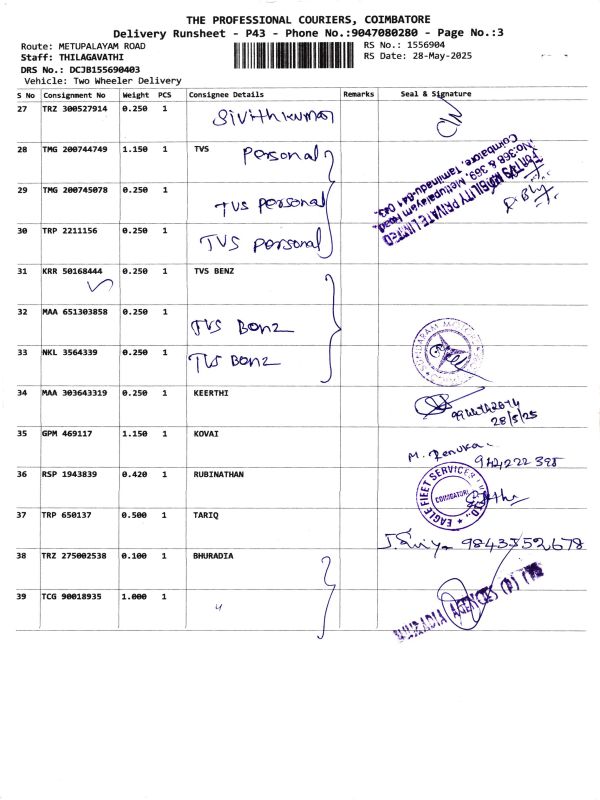 THE PROFESSIONAL COURIERS, COIMBATORE
Delivery Runsheet - P43 - Phone No.:9047080280 - Page No.:3
Route: METUPALAYAM ROAD
RS No.: 1556904
Staff: THILAGAVATHI
RS Date: 28-May-2025
DRS No.: DCJB155690403
Vehicle: Two Wheeler Delivery
S No Consignment No Weight PCS Consignee Details Remarks Seal & Signature
27 TRZ 300527914 0.250 1 Sivithkumar
28 TMG 200744749 1.150 1 TVS Personal
29 TMG 200745078 0.250 1 TVS personal
30 TRP 2211156 0.250 1 TVS personal
For TVS MOBILITY PRIVATE LIMITED
No:368 & 369, Metupalayam Road,
Coimbatore, Tamilnadu-641 043.
31 KRR 50168444 0.250 1 TVS BENZ
32 MAA 651303858 0.250 1 TVS Benz
33 NKL 3564339 0.250 1 TVS Benz
34 MAA 303643319 0.250 1 KEERTHI
28/5/25
35 GPM 469117 1.150 1 KOVAI M. Renuka
36 RSP 1943839 0.420 1 RUBINATHAN
EAGLE FLEET SERVICES
COIMBATORE
37 TRP 650137 0.500 1 TARIQ 9843552678
38 TRZ 275002538 0.100 1 BHURADIA
39 TCG 90018935 1.000 1 "
BHURADIA AGENCIES (P) LTD